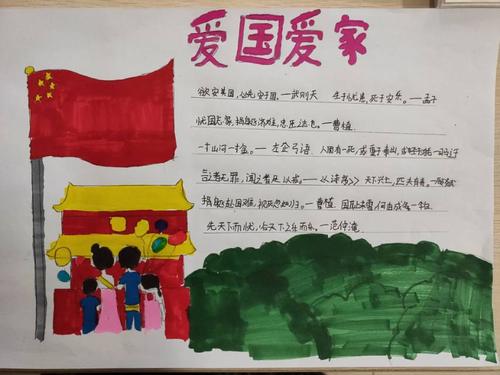 爱国爱家
欲安其国,必先安于国。—武则天 生于忧患,死于安乐。—孟子
忧国忘家,捐躯济难,忠臣之志。—曹植
一寸山河一寸金。—左企弓语 人固有一死,或重于泰山,或轻于鸿毛—司马迁
言之者无罪,闻之者足以戒。—《诗序》 天下兴亡,匹夫有责。—顾炎武
捐躯赴国难,视死忽如归。—曹植 国耻未雪,何由成名—李白
先天下而忧,后天下之乐而乐。—范仲淹